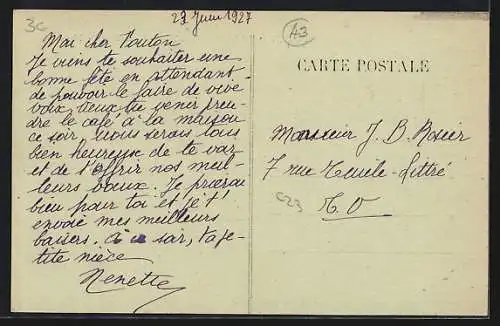 3C
23 Juin 1927
A3
Mon cher Tonton
Je viens te souhaiter une
bonne fête en attendant
de pouvoir le faire de vive
voix, veux tu venir pren-
dre le café à la maison
ce soir, nous serons tous
bien heureuse de te voir
et de t'offrir nos meil-
leurs vœux. Je prierai
bien pour toi et je t'
envoie mes meilleurs
baisers. à ce soir, ta pe-
tite nièce
Nenette
CARTE POSTALE
Monsieur J. B. Rosier
7 rue Emile-Littré
C23
E.V